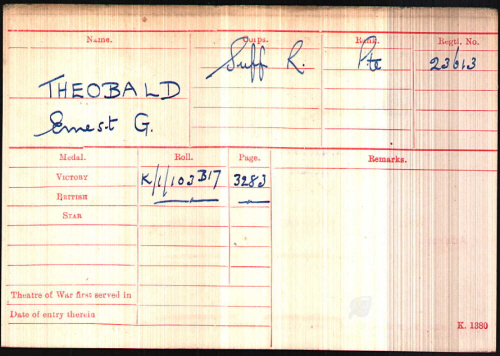 Name. Corps. Rank. Regtl. No.
THEOBALD Suff R. Pte 23613
Ernest G.
Medal. Roll. Page. Remarks.
VICTORY K/1/103B17 3283
BRITISH
STAR
Theatre of War first served in
Date of entry therein
K. 1380